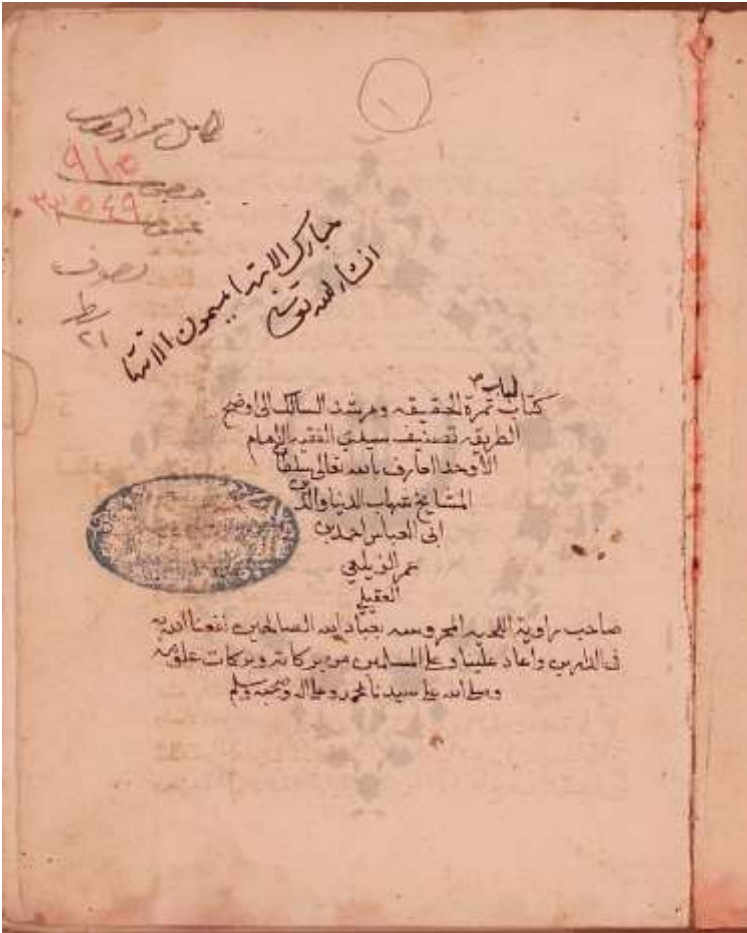 ٩١٥
٣٣٥٤٩
تصوف
٢١
مبارك الابتدا ميمون الانتها
انشاء الله تعالى
لباب
كتاب ثمرة الحقيقه ومرشد السالك الى اوضح
الطريقه تصنيف سيدي الفقيه الامام
الاوحد العارف بالله تعالى سلطان
المشايخ شهاب الدنيا والدين
ابى العباس احمد بن
عمر الزيلعي
العقيلي
صاحب زاوية اللحيه المحروسه بعباد الله الصالحين نفعنا الله به
فى الدارين واعاد علينا وعلى المسلمين من بركاته وبركات علومه
وصلى الله على سيدنا محمد وعلى اله وصحبه وسلم